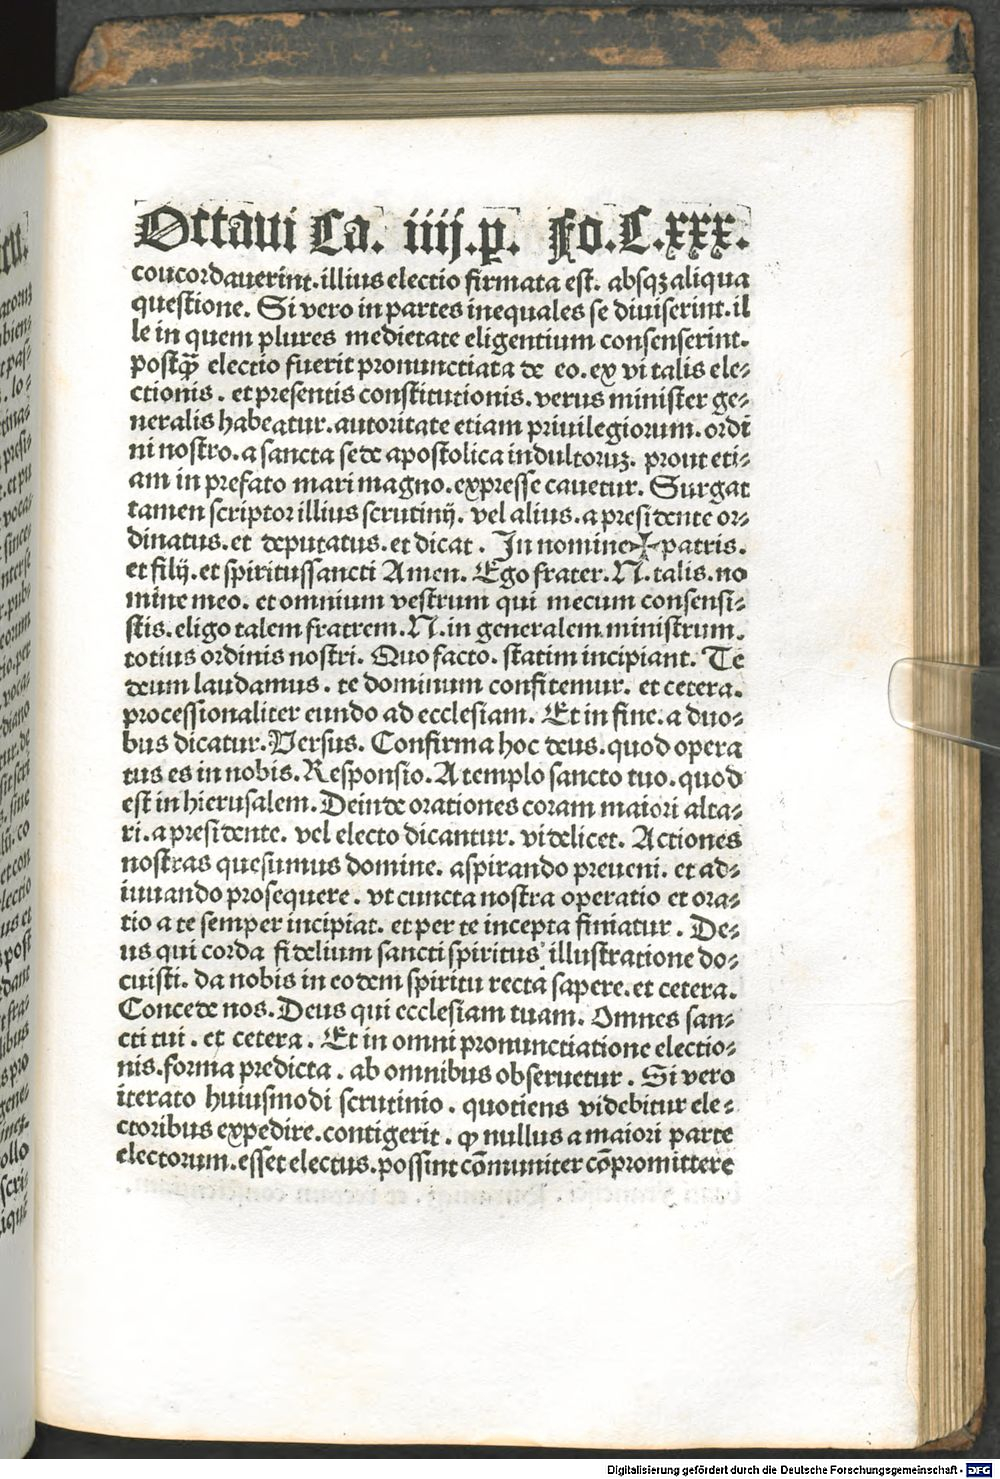 Octaui Ca. iiij.p. Fo.C.xxx.
concordauerint.illius electio firmata est. absqꝫ aliqua
questione. Si vero in partes inequales se diuiserint.il
le in quem plures medietate eligentium consenserint.
postqꝫ̃ electio fuerit pronunctiata de eo.ex vi talis ele⸗
ctionis. et presentis constitutionis.verus minister ge⸗
neralis habeatur.autoritate etiam priuilegiorum.ordĩ
ni nostro.a sancta sede apostolica indultoruꝫ. prout eti⸗
am in prefato mari magno.expresse cauetur. Surgat
tamen scriptor illius scrutinij. vel alius.a presidente or⸗
dinatus.et deputatus.et dicat. In nomine✠patris.
et filij.et spiritussancti Amen. Ego frater.N.talis.no
mine meo. et omnium vestrum qui mecum consensi⸗
stis.eligo talem fratrem.N.in generalem ministrum.
totius ordinis nostri. Quo facto. statim incipiant. Te
deum laudamus. te dominum confitemur. et cetera.
processionaliter eundo ad ecclesiam. Et in fine.a duo⸗
bus dicatur.Versus. Confirma hoc deus.quod opera
tus es in nobis.Responsio.A templo sancto tuo.quod
est in hierusalem.Deinde orationes coram maiori alta⸗
ri.a presidente. vel electo dicantur. videlicet. Actiones
nostras quesumus domine. aspirando preueni. et ad⸗
iuuando prosequere. vt cuncta nostra operatio et ora⸗
tio a te semper incipiat. et per te incepta finiatur. De⸗
us qui corda fidelium sancti spiritus illustratione do⸗
cuisti. da nobis in eodem spiritu recta sapere.et cetera.
Concede nos.Deus qui ecclesiam tuam. Omnes san⸗
cti tui. et cetera. Et in omni pronunctiatione electio⸗
nis.forma predicta. ab omnibus obseruetur. Si vero
iterato huiusmodi scrutinio. quotiens videbitur ele⸗
ctoribus expedire.contigerit. ꝙ nullus a maiori parte
electorum.esset electus.possint cõmuniter cõpromittere
Digitalisierung gefördert durch die Deutsche Forschungsgemeinschaft - DFG